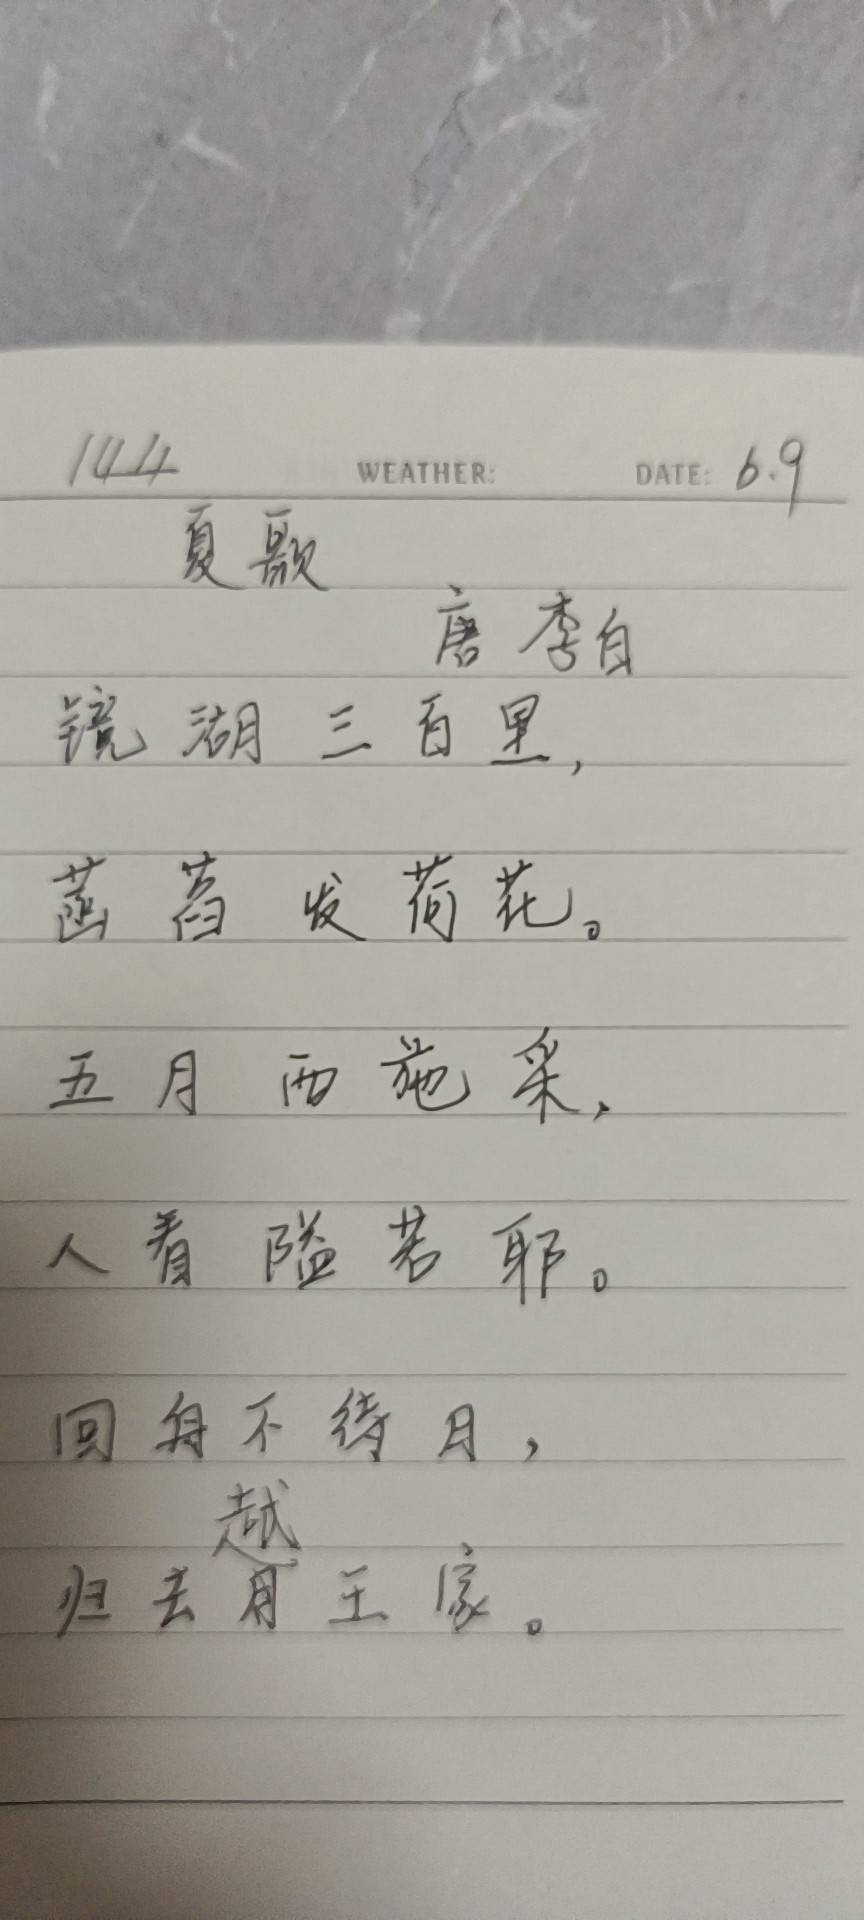 144 WEATHER: DATE: 6.9
夏歌
唐 李白
镜湖三百里，
菡萏发荷花。
五月西施采，
人看隘若耶。
回舟不待月，
越
归去月王家。